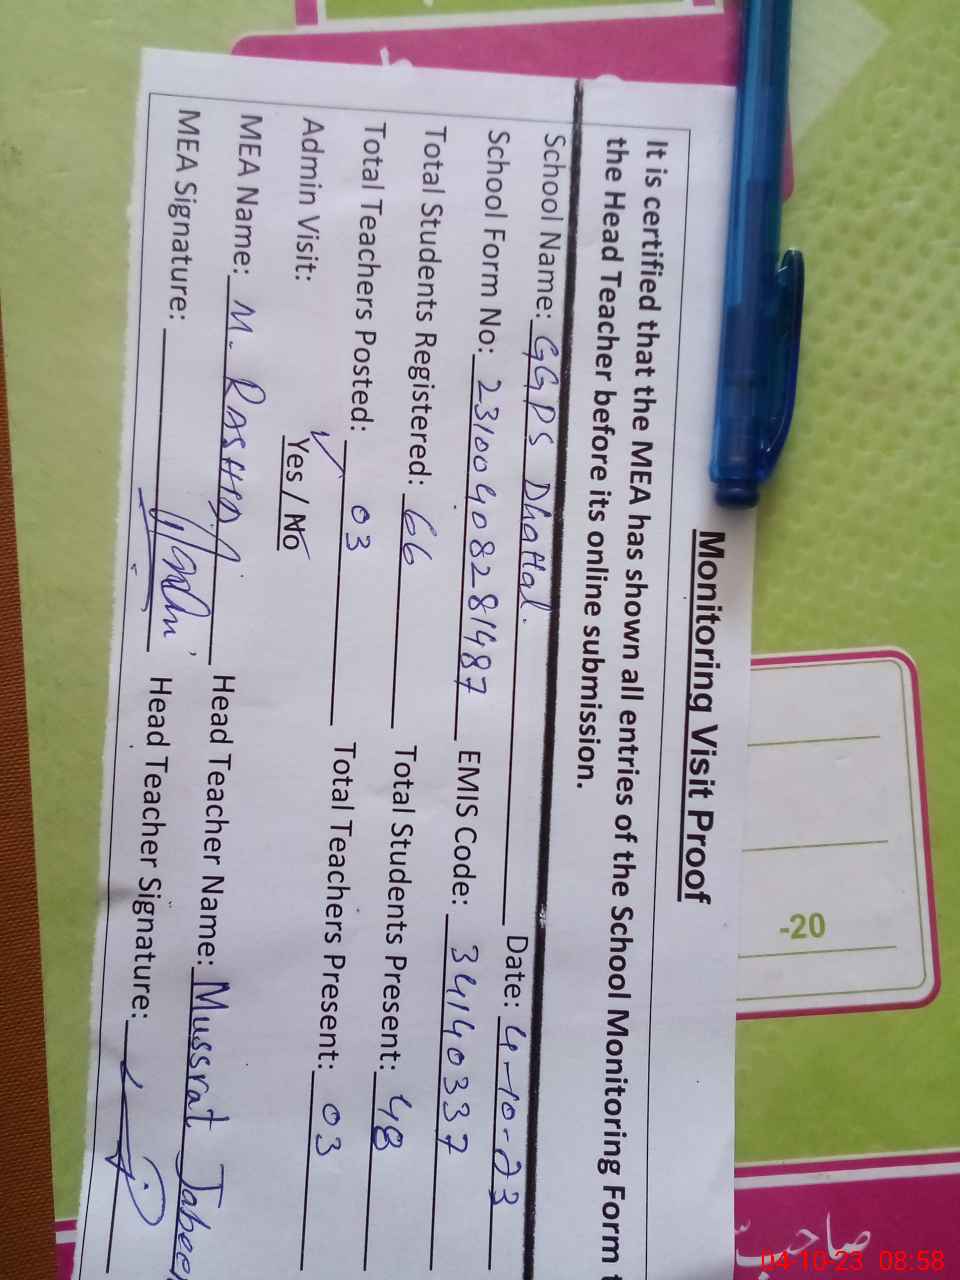 Monitoring Visit Proof
It is certified that the MEA has shown all entries of the School Monitoring Form t
the Head Teacher before its online submission.
School Name: GGPS Dhattal. Date: 4-10-23
School Form No: 23100408281487 EMIS Code: 34140337
Total Students Registered: 66 Total Students Present: 48
Total Teachers Posted: 03 Total Teachers Present: 03
Admin Visit: Yes / No
MEA Name: M. RASHID Head Teacher Name: Mussrat Jabeen
MEA Signature: Head Teacher Signature:
-20
صاحب
04-10-23 08:58